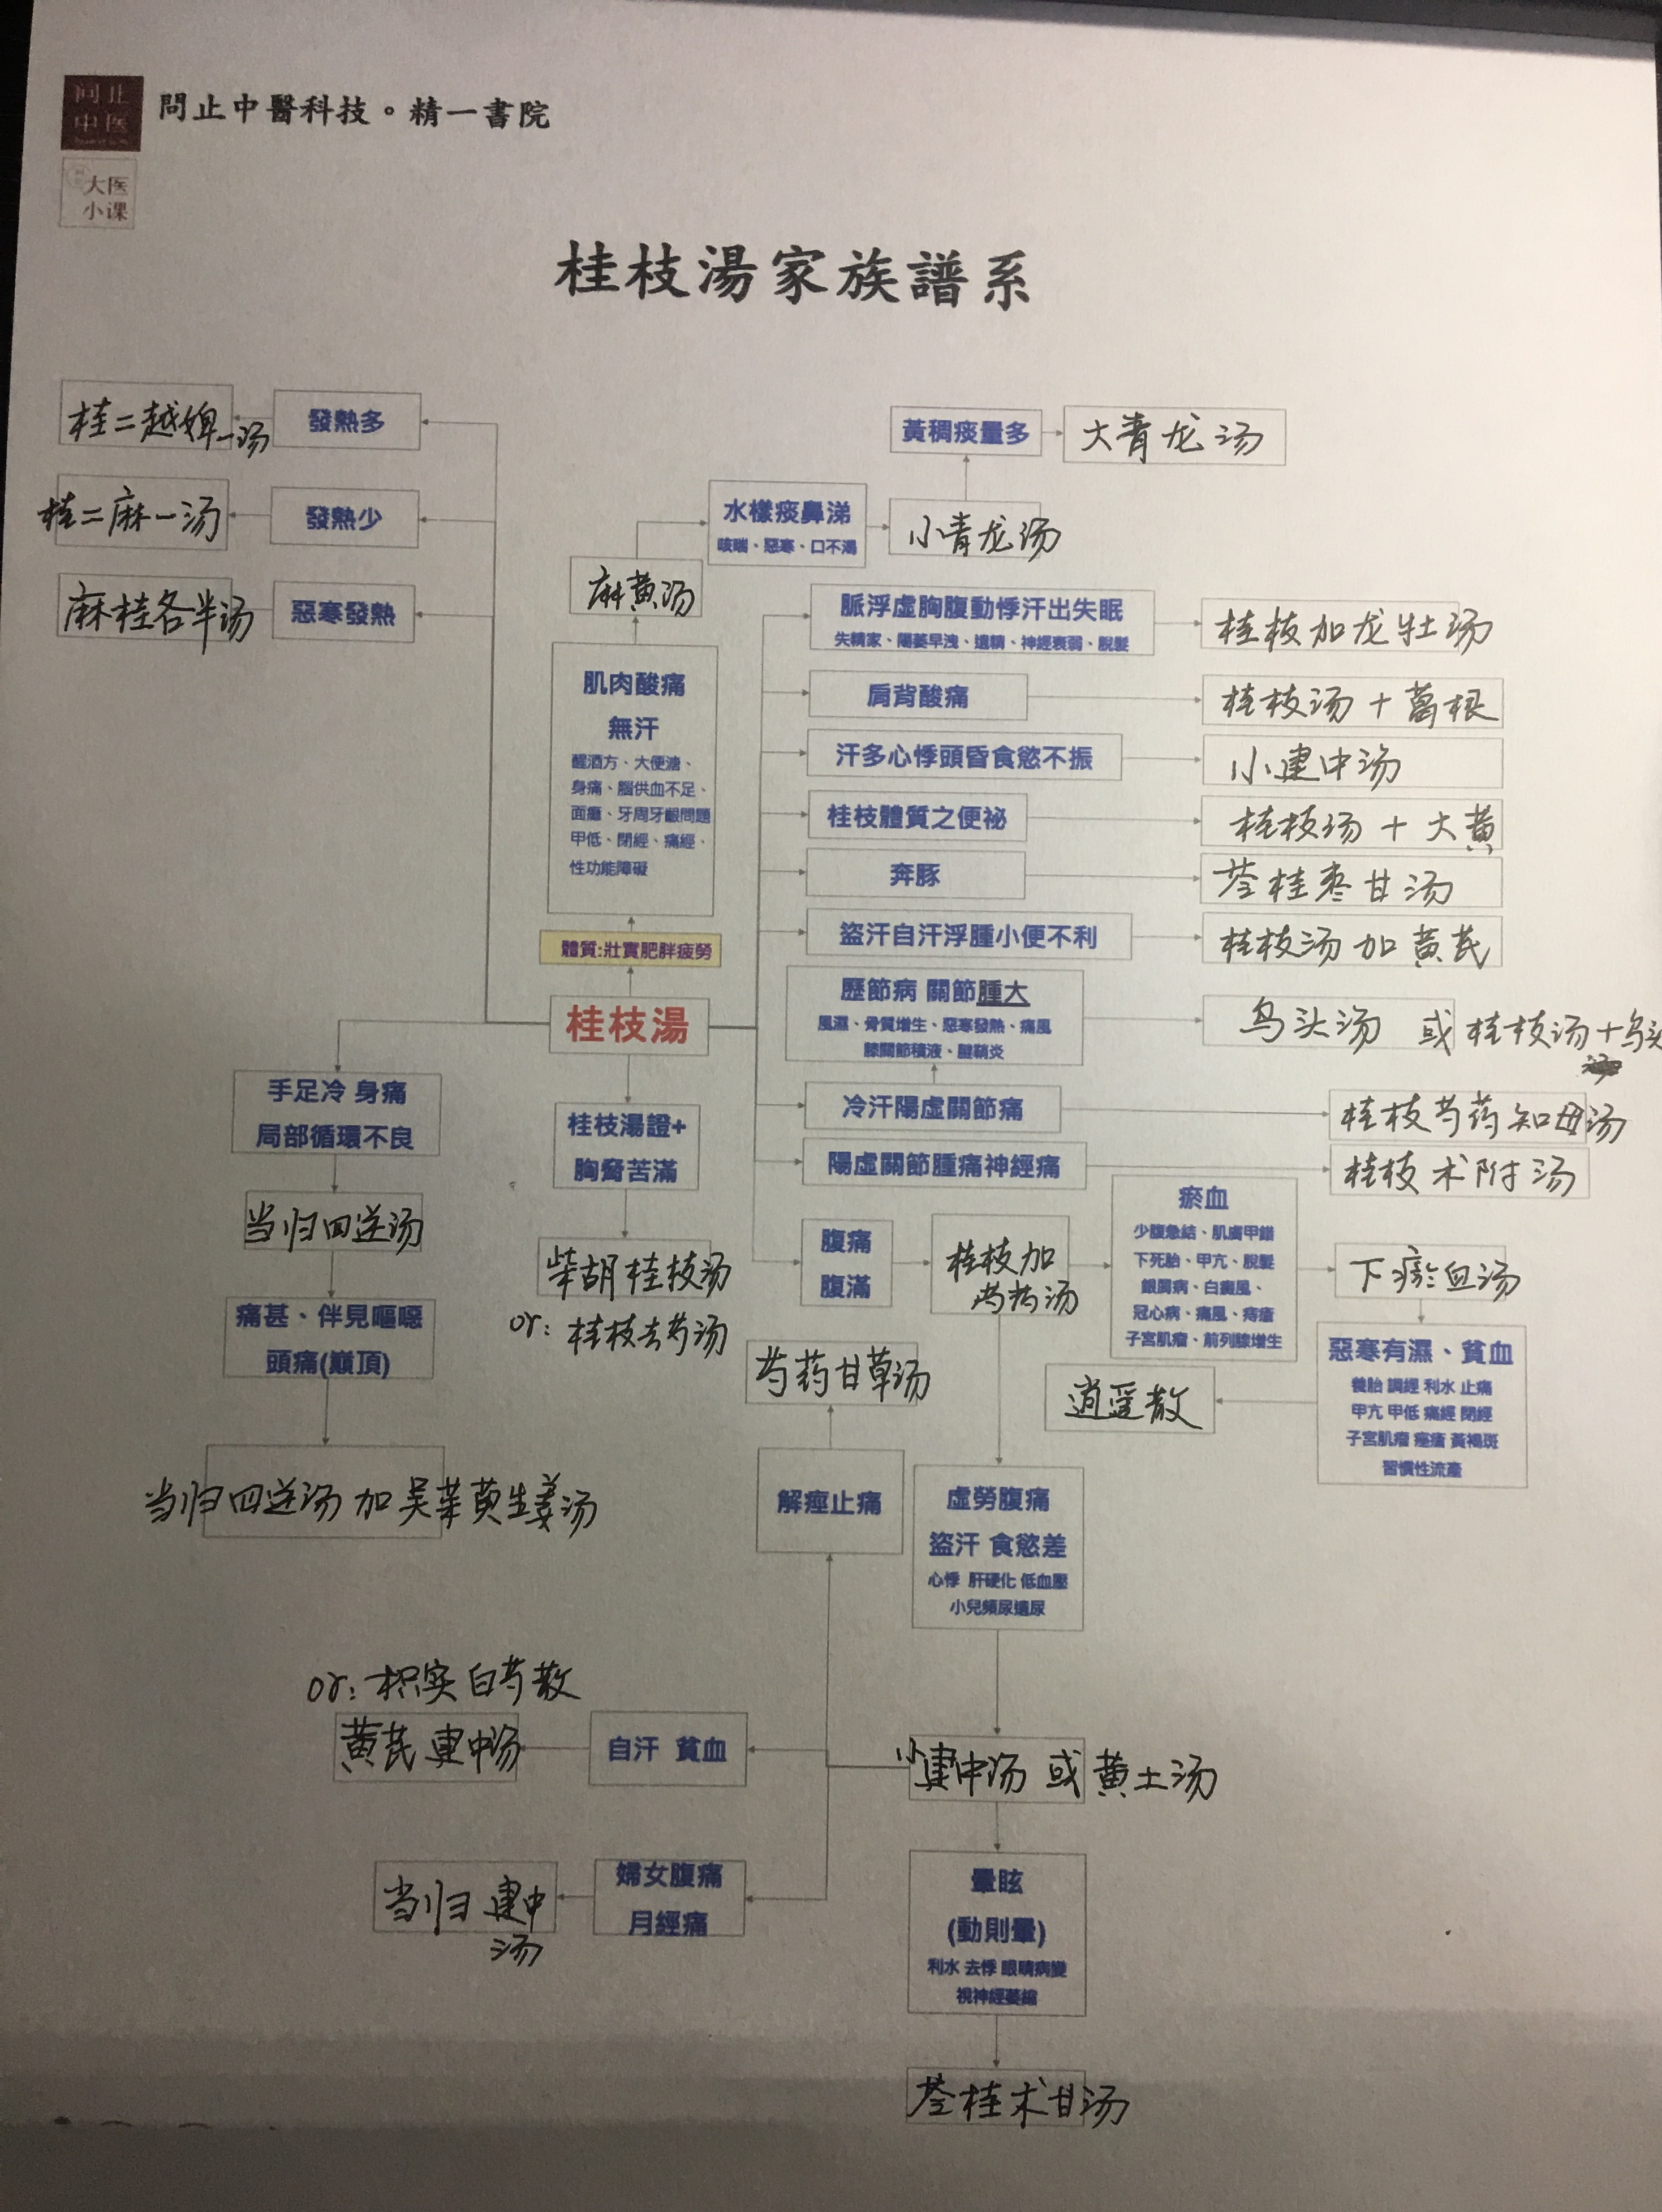 问止
中医
問止中醫科技。精一書院
大医
小课
桂枝湯家族譜系
桂二越婢一汤
發熱多
桂二麻一汤
發熱少
麻桂各半汤
惡寒發熱
黃稠痰量多
大青龙汤
水樣痰鼻涕
咳喘、惡寒、口不渴
小青龙汤
麻黄汤
肌肉酸痛
無汗
醒酒方、大便溏、
身痛、腦供血不足、
面癱、牙周牙齦問題
甲低、閉經、痛經、
性功能障礙
體質:壯實肥胖疲勞
桂枝湯
脈浮虛胸腹動悸汗出失眠
失精家、陽萎早洩、遺精、神經衰弱、脫髮
桂枝加龙牡汤
肩背酸痛
桂枝汤+葛根
汗多心悸頭昏食慾不振
小建中汤
桂枝體質之便祕
桂枝汤+大黄
奔豚
苓桂枣甘汤
盜汗自汗浮腫小便不利
桂枝汤加黄芪
歷節病 關節腫大
風濕、骨質增生、惡寒發熱、痛風
膝關節積液、腱鞘炎
乌头汤 或桂枝汤+乌头
冷汗陽虛關節痛
桂枝芍药知母汤
陽虛關節腫痛神經痛
桂枝术附汤
手足冷 身痛
局部循環不良
当归四逆汤
痛甚、伴見嘔噁
頭痛(巔頂)
当归四逆汤加吴茱萸生姜汤
桂枝湯證+
胸脅苦滿
柴胡桂枝汤
or: 桂枝去芍汤
腹痛
腹滿
桂枝加
芍药汤
瘀血
少腹急結、肌膚甲錯
下死胎、甲亢、脫髮
銀屑病、白癜風、
冠心病、痛風、痔瘡
子宮肌瘤、前列腺增生
下瘀血汤
惡寒有濕、貧血
養胎 調經 利水 止痛
甲亢 甲低 痛經 閉經
子宮肌瘤 痤瘡 黃褐斑
習慣性流產
逍遥散
芍药甘草汤
解痙止痛
虛勞腹痛
盜汗 食慾差
心悸 肝硬化 低血壓
小兒頻尿遺尿
小建中汤 或 黄土汤
or: 枳实白芍散
黄芪建中汤
自汗 貧血
当归建中
汤
婦女腹痛
月經痛
暈眩
(動則暈)
利水 去悸 眼睛病變
視神經萎縮
苓桂术甘汤